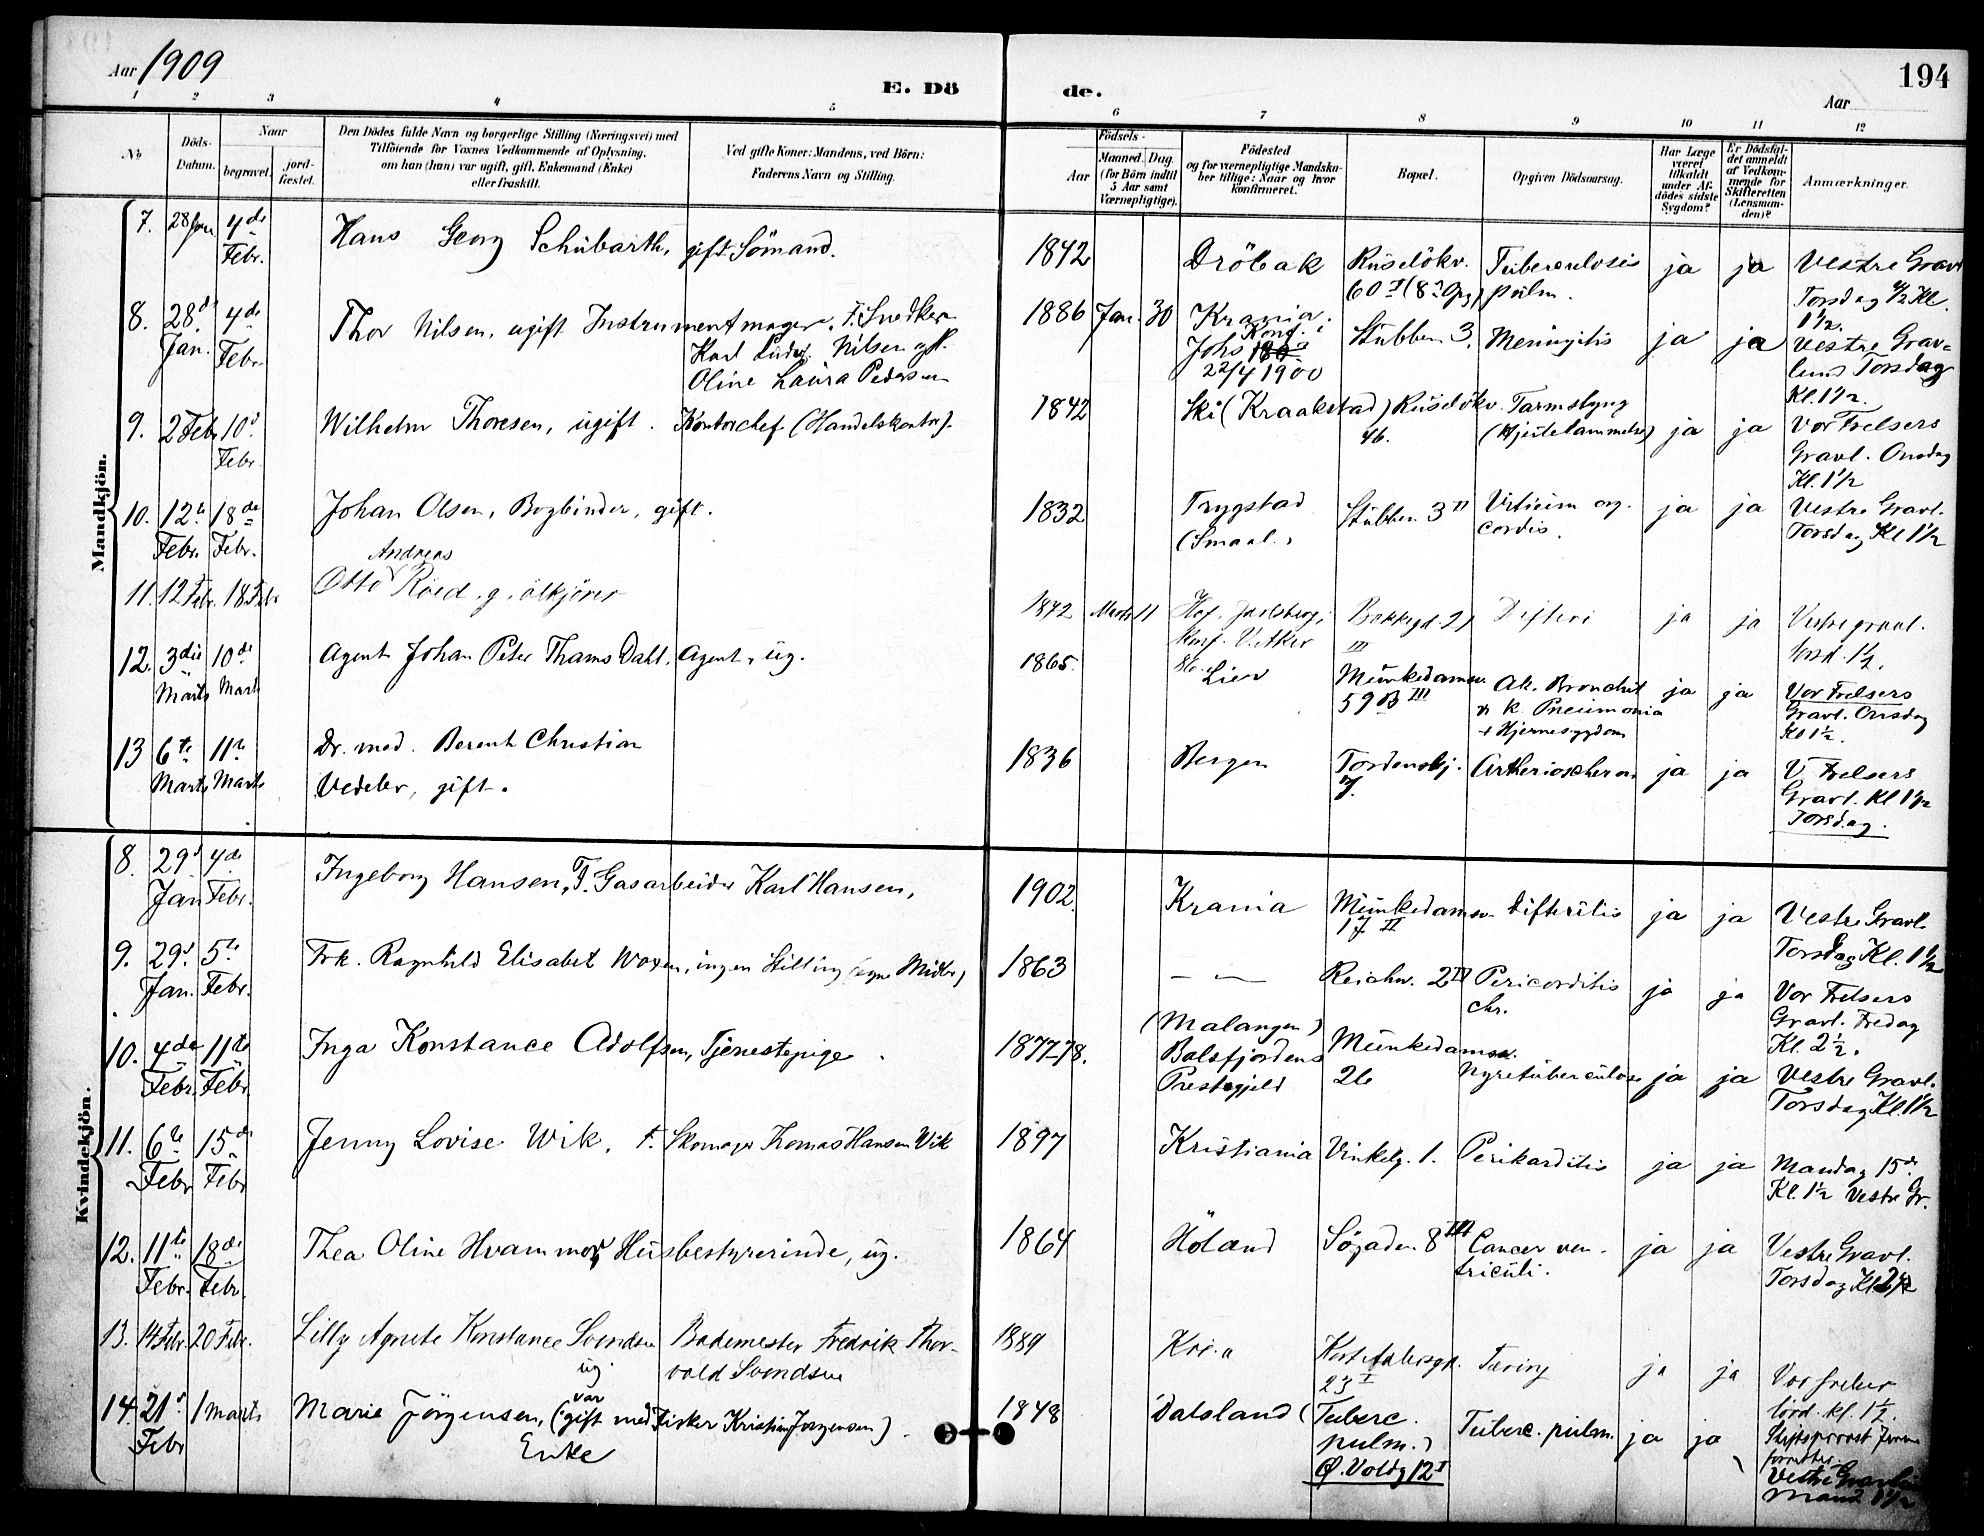 Aar 1909
E. Dö
de.
194
Aar
1 2 3 4 5 6 7 8 9 10 11 12
No
Döds-Datum.
Naar
begravet.
jord-fæstet.
Den Dödes fulde Navn og borgerlige Stilling (Næringsvei) med
Tilföiende for Voxnes Vedkommende af Oplysning,
om han (hun) var ugift, gift, Enkemand (Enke)
eller fraskilt.
Ved gifte Koner: Mandens, ved Börn:
Faderens Navn og Stilling.
Födsels-
Aar
Maaned. Dag.
(for Börn indtil
5 Aar samt
Værnepligtige).
Födested
og for værnepligtige Mandska-
ber tillige: Naar og hvor
konfirmeret.
Bopæl.
Opgiven Dödsaarsag.
Har Læge
været
tilkaldt
under Af-
dödes sidste
Sygdom?
Er Dödsfal-
det anmeldt
af Vedkom-
mende for
Skifteretten
(Lensman-
den)?
Anmærkninger.
Mandkjön.
7. 28 Jan. 4de Hans Georg Schübarth, gift Sömand. 1842 Dröbak Rüselökv. Tüberculosis ja ja Vestre Gravl
Febr. 60 (8 Opg) pülm. Torsdag 4/2 Kl. 1½.
8. 28de 4de Thor Nilsen, ugift Instrumentmager, F. Snedker 1886 Jan. 30 Krania. Stübben 3. Meningitis ja ja Vestre Grav-
Jan. Febr. Karl Nilsen Konf. i Johs lund Torsdag
Oline Laüra Pedersen 22/4 1900 Kl. 1½.
9. 2 Feb 10d Wilhelm Thoresen, ügift. Kontorchef (Handelskontor). 1842 Ski (Kraakstad) Rüselökv. Tarmslyng ja ja Vor Frelsers
Febr. 46. (Hjertelammelse) Gravl. Onsdag
Kl. 1½
10. 12te 18de Johan Olsen, Bogbinder, gift. 1832 Trygstad Stübben 3 II Vitiüm org. ja ja Vestre Gravl.
Febr. Febr. (Smaal.) cordis. Torsdag Kl 1½
Andreas
11. 12 Febr. 18 Febr Otto Röed, g, ölkjörer 1872 Marts 11 Jarlsberg, Bakkegd. 21 Difteri ja ja Vestre gravl.
Konf. V. Aker III Torsd. 1½.
86.
12. 3die 10de Agent Johan Peter Thams Dahl, Agent, üg. 1865. Lier Münkedamsv. Ak. Bronchit ja ja Vor Frelsers
Marts Marts 59 B III k. Pneümonia Gravl. Onsdag
+ Hjernesygdom Kl 1½.
13 6te 11te Dr. med. Berent Christian 1836 Bergen Tordenskj. Artherioscheros ja ja V. Frelsers
Marts Marts Vedeler, gift. 7. Gravl. Kl 1½
Torsdag.
Kvindekjön.
8. 29d 4de Ingeborg Hansen, F. Gasarbeider Karl Hansen, 1902. Krania Münkedamsv. Difteritis ja ja Vestre Gravl.
Jan Febr. 17 II Torsdag Kl. 1½
9. 29d 5te Frk. Ragnhild Elisabet Woxen, ingen Stilling (egne Midler) 1863 — — Reichw. 2 II Pericorditis ja ja Vor Frelsers
Jan. Febr. chr. Gravl. Fredag
Kl. 2½.
10. 4de 11te Inga Konstance Adolfsen, Tjenestepige. 1877-78. (Malangen) Münkedamsv. Nyretüberculose ja ja Vestre Gravl.
Febr. Febr. Balsfjordens 26 Torsdag Kl. 1½
Prestegjeld
11. 6te 15de Jenny Lovise Wik, F. Skomager Tomas Hansen Wik 1897 Kristiania Vinkelg. 1. Perikarditis ja ja Mandag 15de
Febr Febr Kl. 1½ Vestre Gr.
12. 11te 18de Thea Oline Hvammer, Hüsbestyrerinde, üg. 1864 Höland Sögaden 8 III Cancer ven- ja ja Vestre Gravl.
Febr. Febr. tricüli. Torsdag Kl
13. 14 Febr. 20 Febr. Lilly Agnete Konstance Svendsen Bademester Fredrik Thor- 1889 Kri.a Taring ja ja Vor frelser
üg. vald Svendsen 23 I lörd. kl. 1½.
14. 21d 1 marts Marie Jörgensen, (var gift med Fisker Kristian Jorgensen). 1848 Dalsland (Tüberc. Tüberc. pülm. ja ja
Febr Enke pulm.) Vestre Gravlund
Ø. Voldg 12 I Mand. 1½